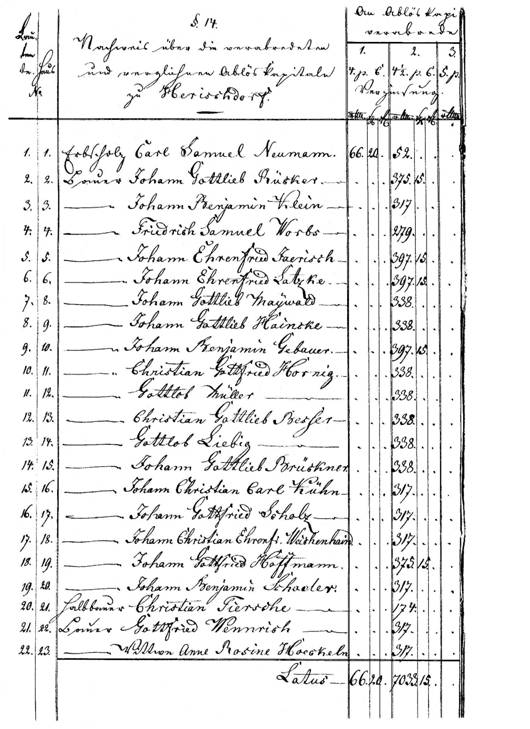 §. 14.
Nachweis über die verabredeten
und verglichnen Ablös Kapitale
zu Herischdorf.
An Ablös Kapi
verabrede
1. 2. 3.
4. p. C. 4½. p. C. 5. p.
Verzinsung.
Haus
No
1. 1. Erbscholz Carl Samuel Neumann. 66. 20. 52.
2. 2. Bauer Johann Gottlieb Rücker 375. 15.
3. 3. Johann Benjamin Klein 317
4. 4. Friedrich Samuel Worbs 279.
5. 5. Johann Ehrenfried Jaerisch 397. 15.
6. 6. Johann Ehrenfried Latzke 397. 15.
7. 8. Johann Gottlieb Maywald 338.
8. 9. Johann Gottlieb Hainske 338.
9. 10. Johann Benjamin Gebauer. 397. 15.
10. 11. Christian Gottfried Hornig. 338.
11. 12. Gottlob Müller 338.
12. 13. Christian Gottlieb Besser 338.
13. 14. Gottlob Liebig 338.
14. 15. Johann Gottlieb Brückner 338.
15. 16. Johann Christian Carl Kühn 317.
16. 17. Johann Gottfried Scholz 317.
17. 18. Johann Christian Ehrenfr. Weichenhain 317.
18. 19. Johann Gottfried Hoffmann. 375. 15.
19. 20. Johann Benjamin 317.
20. 21. Halbbauer Christian Tiersche 174.
21. 22. Bauer Gottfried Wennrich 317.
22. 23. Wittwe Anne Rosine Hoeckeln 317.
Latus 66. 20. 7033. 15.